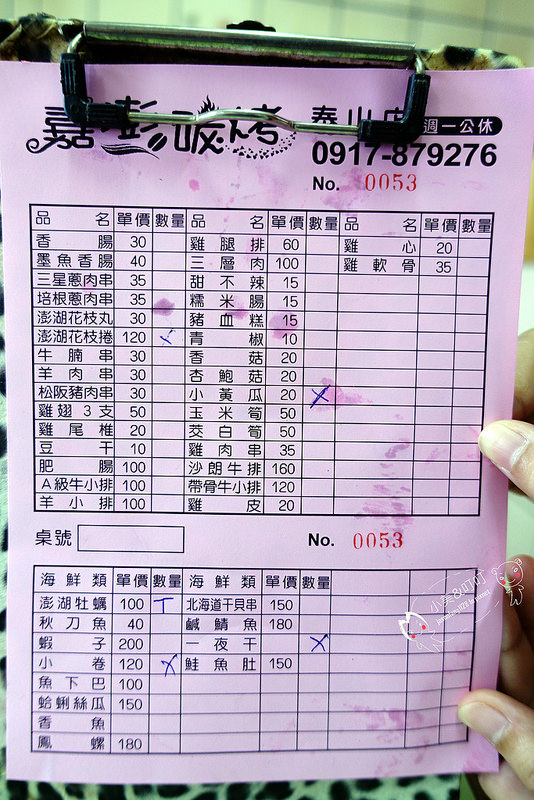 嘉澎碳烤 泰山店 週一公休
0917-879276
No. 0053
品名 單價 數量 品名 單價 數量 品名 單價 數量
香腸 30 雞腿排 60 雞心 20
墨魚香腸 40 三層肉 100 雞軟骨 35
三星蔥肉串 35 甜不辣 15
培根蔥肉串 35 糯米腸 15
澎湖花枝丸 30 豬血糕 15
澎湖花枝捲 120 X 青椒 10
牛腩串 30 香菇 20
羊肉串 30 杏鮑菇 20
松阪豬肉串 30 小黃瓜 20 X
雞翅3支 50 玉米筍 50
雞尾椎 20 茭白筍 50
豆干 10 雞肉串 35
肥腸 100 沙朗牛排 160
A級牛小排 100 帶骨牛小排 120
羊小排 100 雞皮 20
桌號 No. 0053
海鮮類 單價 數量 海鮮類 單價 數量
澎湖牡蠣 100 一 北海道干貝串 150
秋刀魚 40 鹹鯖魚 180
蝦子 200 一夜干 X
小卷 120 X 鮭魚肚 150
魚下巴 100
蛤蜊絲瓜 150
香魚
鳳螺 180